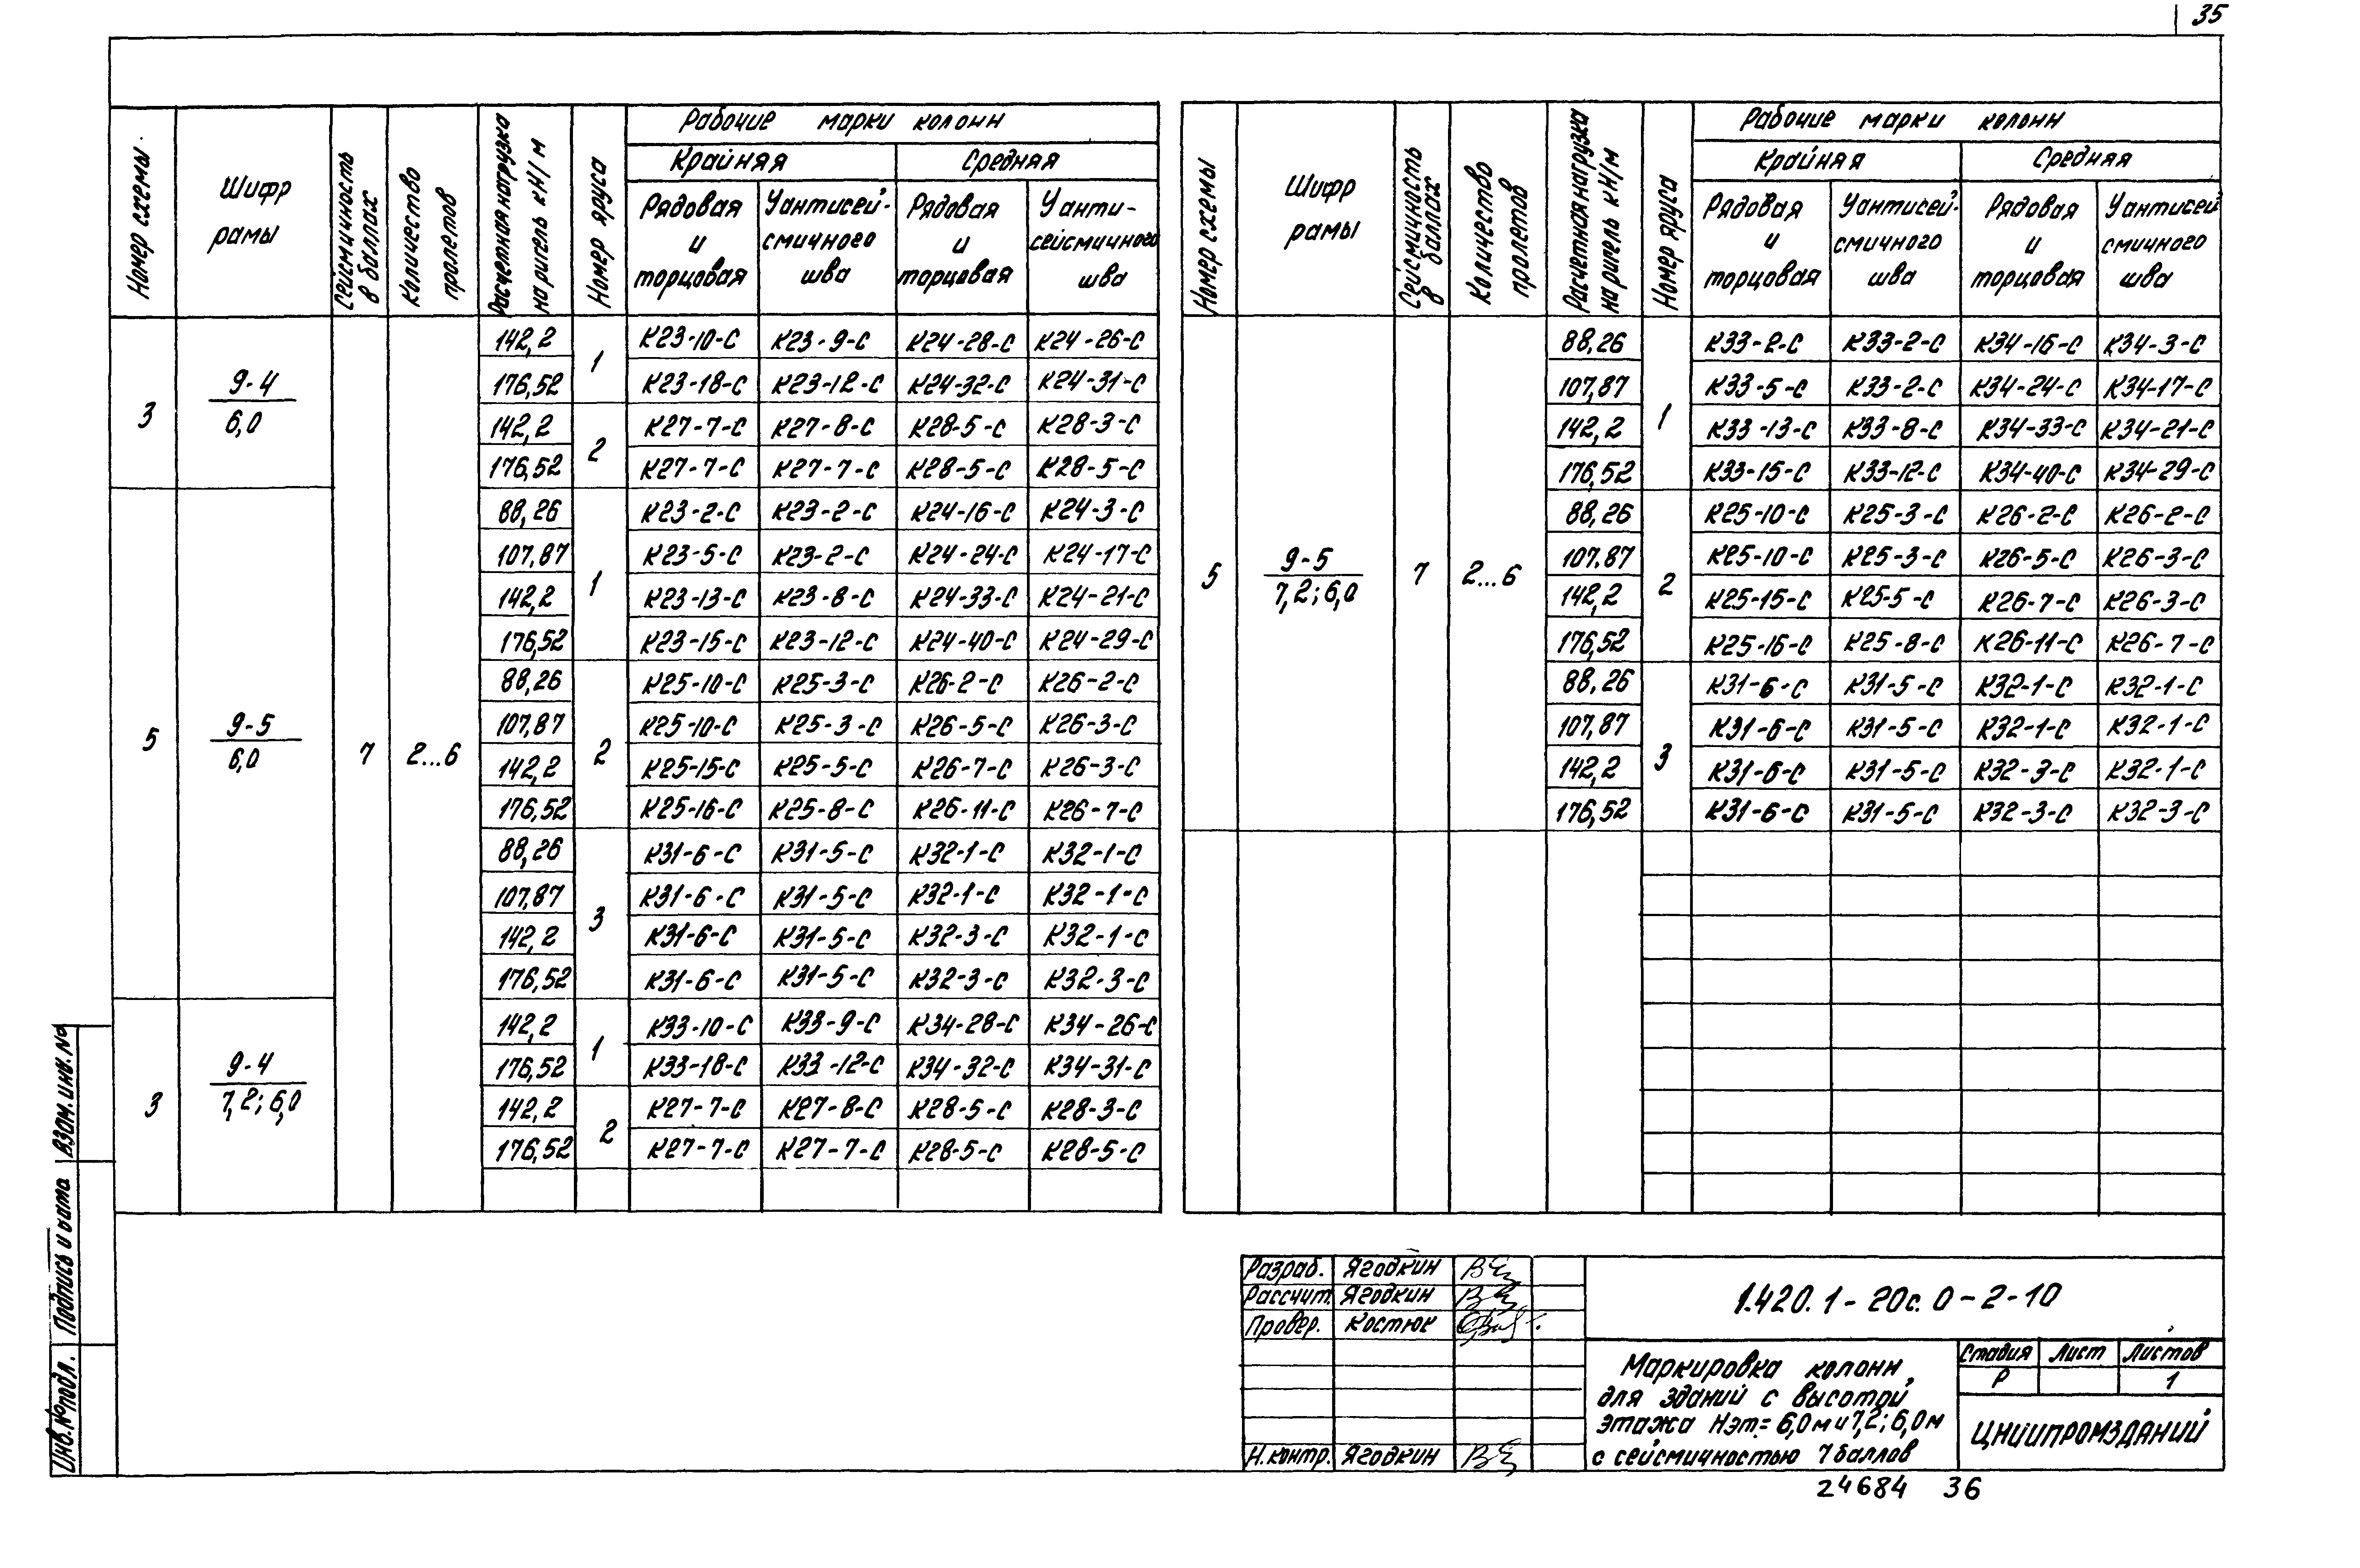 35
Номер схемы
Шифр рамы
Сейсмичность в баллах
Количество пролетов
Расчетная нагрузка на ригель кН/м
Номер яруса
Рабочие марки колонн
Крайняя
Средняя
Рядовая и торцовая
У антисей-смичного шва
Рядовая и торцовая
У анти-сейсмичного шва
3 9-4 / 6,0
142,2 1 К23-10-С К23-9-С К24-28-С К24-26-С
176,52 К23-18-С К23-12-С К24-32-С К24-31-С
142,2 2 К27-7-С К27-8-С К28-5-С К28-3-С
176,52 К27-7-С К27-7-С К28-5-С К28-5-С
5 9-5 / 6,0 7 2...6
88,26 1 К23-2-С К23-2-С К24-16-С К24-3-С
107,87 К23-5-С К23-2-С К24-24-С К24-17-С
142,2 К23-13-С К23-8-С К24-33-С К24-21-С
176,52 К23-15-С К23-12-С К24-40-С К24-29-С
88,26 2 К25-10-С К25-3-С К26-2-С К26-2-С
107,87 К25-10-С К25-3-С К26-5-С К26-3-С
142,2 К25-15-С К25-5-С К26-7-С К26-3-С
176,52 К25-16-С К25-8-С К26-11-С К26-7-С
88,26 3 К31-6-С К31-5-С К32-1-С К32-1-С
107,87 К31-6-С К31-5-С К32-1-С К32-1-С
142,2 К31-6-С К31-5-С К32-3-С К32-1-С
176,52 К31-6-С К31-5-С К32-3-С К32-3-С
3 9-4 / 7,2; 6,0
142,2 1 К33-10-С К33-9-С К34-28-С К34-26-С
176,52 К33-18-С К33-12-С К34-32-С К34-31-С
142,2 2 К27-7-С К27-8-С К28-5-С К28-3-С
176,52 К27-7-С К27-7-С К28-5-С К28-5-С
Номер схемы
Шифр рамы
Сейсмичность в баллах
Количество пролетов
Расчетная нагрузка на ригель кН/м
Номер яруса
Рабочие марки колонн
Крайняя
Средняя
Рядовая и торцовая
У антисей-смичного шва
Рядовая и торцовая
У антисей-смичного шва
5 9-5 / 7,2; 6,0 7 2...6
88,26 1 К33-2-С К33-2-С К34-16-С К34-3-С
107,87 К33-5-С К33-2-С К34-24-С К34-17-С
142,2 К33-13-С К33-8-С К34-33-С К34-21-С
176,52 К33-15-С К33-12-С К34-40-С К34-29-С
88,26 2 К25-10-С К25-3-С К26-2-С К26-2-С
107,87 К25-10-С К25-3-С К26-5-С К26-3-С
142,2 К25-15-С К25-5-С К26-7-С К26-3-С
176,52 К25-16-С К25-8-С К26-11-С К26-7-С
88,26 3 К31-6-С К31-5-С К32-1-С К32-1-С
107,87 К31-6-С К31-5-С К32-1-С К32-1-С
142,2 К31-6-С К31-5-С К32-3-С К32-1-С
176,52 К31-6-С К31-5-С К32-3-С К32-3-С
Взам. инв. №
Подпись и дата
Инв. № подл.
Разраб. Ягодкин
Рассчит. Ягодкин
Провер. Костюк
Н. контр. Ягодкин
1.420.1-20с.0-2-10
Маркировка колонн
для зданий с высотой
этажа Нэт.= 6,0м и 7,2; 6,0м
с сейсмичностью 7 баллов
Стадия Лист Листов
Р 1
ЦНИИПРОМЗДАНИЙ
24684 36